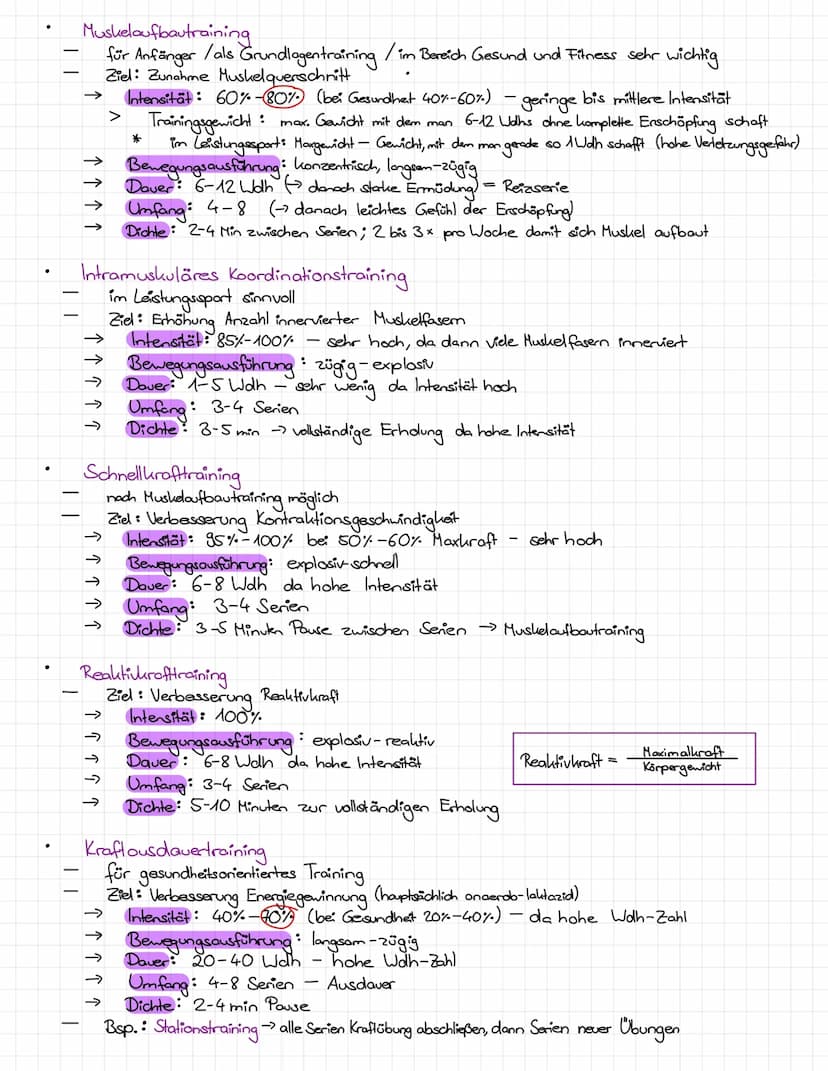 • Muskelaufbautraining
— für Anfänger / als Grundlagentraining / im Bereich Gesund und Fitness sehr wichtig
— Ziel: Zunahme Muskelquerschnitt
→ Intensität: 60%-80% (bei Gesundheit 40%-60%) – geringe bis mittlere Intensität
> Trainingsgewicht: max. Gewicht mit dem man 6-12 Wdhs ohne komplette Erschöpfung schafft
* im Leistungssport: Maxgewicht – Gewicht, mit dem man gerade so 1 Wdh schafft (hohe Verletzungsgefahr)
→ Bewegungsausführung: konzentrisch, langsam-zügig
→ Dauer: 6-12 Wdh (→ danach starke Ermüdung) = Reizserie
→ Umfang: 4-8 (→ danach leichtes Gefühl der Erschöpfung)
→ Dichte: 2-4 Min zwischen Serien; 2 bis 3x pro Woche damit sich Muskel aufbaut
• Intramuskuläres Koordinationstraining
— im Leistungssport sinnvoll
— Ziel: Erhöhung Anzahl innervierter Muskelfasern
→ Intensität: 85%-100% – sehr hoch, da dann viele Muskelfasern innerviert
→ Bewegungsausführung: zügig-explosiv
→ Dauer: 1-5 Wdh – sehr wenig da Intensität hoch
→ Umfang: 3-4 Serien
→ Dichte: 3-5 min → vollständige Erholung da hohe Intensität
• Schnellkrafttraining
— nach Muskelaufbautraining möglich
— Ziel: Verbesserung Kontraktionsgeschwindigkeit
→ Intensität: 95%-100% bei 50%-60% Maxkraft – sehr hoch
→ Bewegungsausführung: explosiv-schnell
→ Dauer: 6-8 Wdh da hohe Intensität
→ Umfang: 3-4 Serien
→ Dichte: 3-5 Minuten Pause zwischen Serien → Muskelaufbautraining
• Reaktivkrafttraining
— Ziel: Verbesserung Reaktivkraft
→ Intensität: 100%
→ Bewegungsausführung: explosiv-reaktiv
→ Dauer: 6-8 Wdh da hohe Intensität
→ Umfang: 3-4 Serien
→ Dichte: 5-10 Minuten zur vollständigen Erholung
Reaktivkraft = Maximalkraft / Körpergewicht
• Kraftausdauertraining
— für gesundheitsorientiertes Training
— Ziel: Verbesserung Energiegewinnung (hauptsächlich anaerob-laktazid)
→ Intensität: 40%-70% (bei Gesundheit 20%-40%) – da hohe Wdh-Zahl
→ Bewegungsausführung: langsam-zügig
→ Dauer: 20-40 Wdh – hohe Wdh-Zahl
→ Umfang: 4-8 Serien – Ausdauer
→ Dichte: 2-4 min Pause
— Bsp.: Stationstraining → alle Serien Kraftübung abschließen, dann Serien neuer Übungen